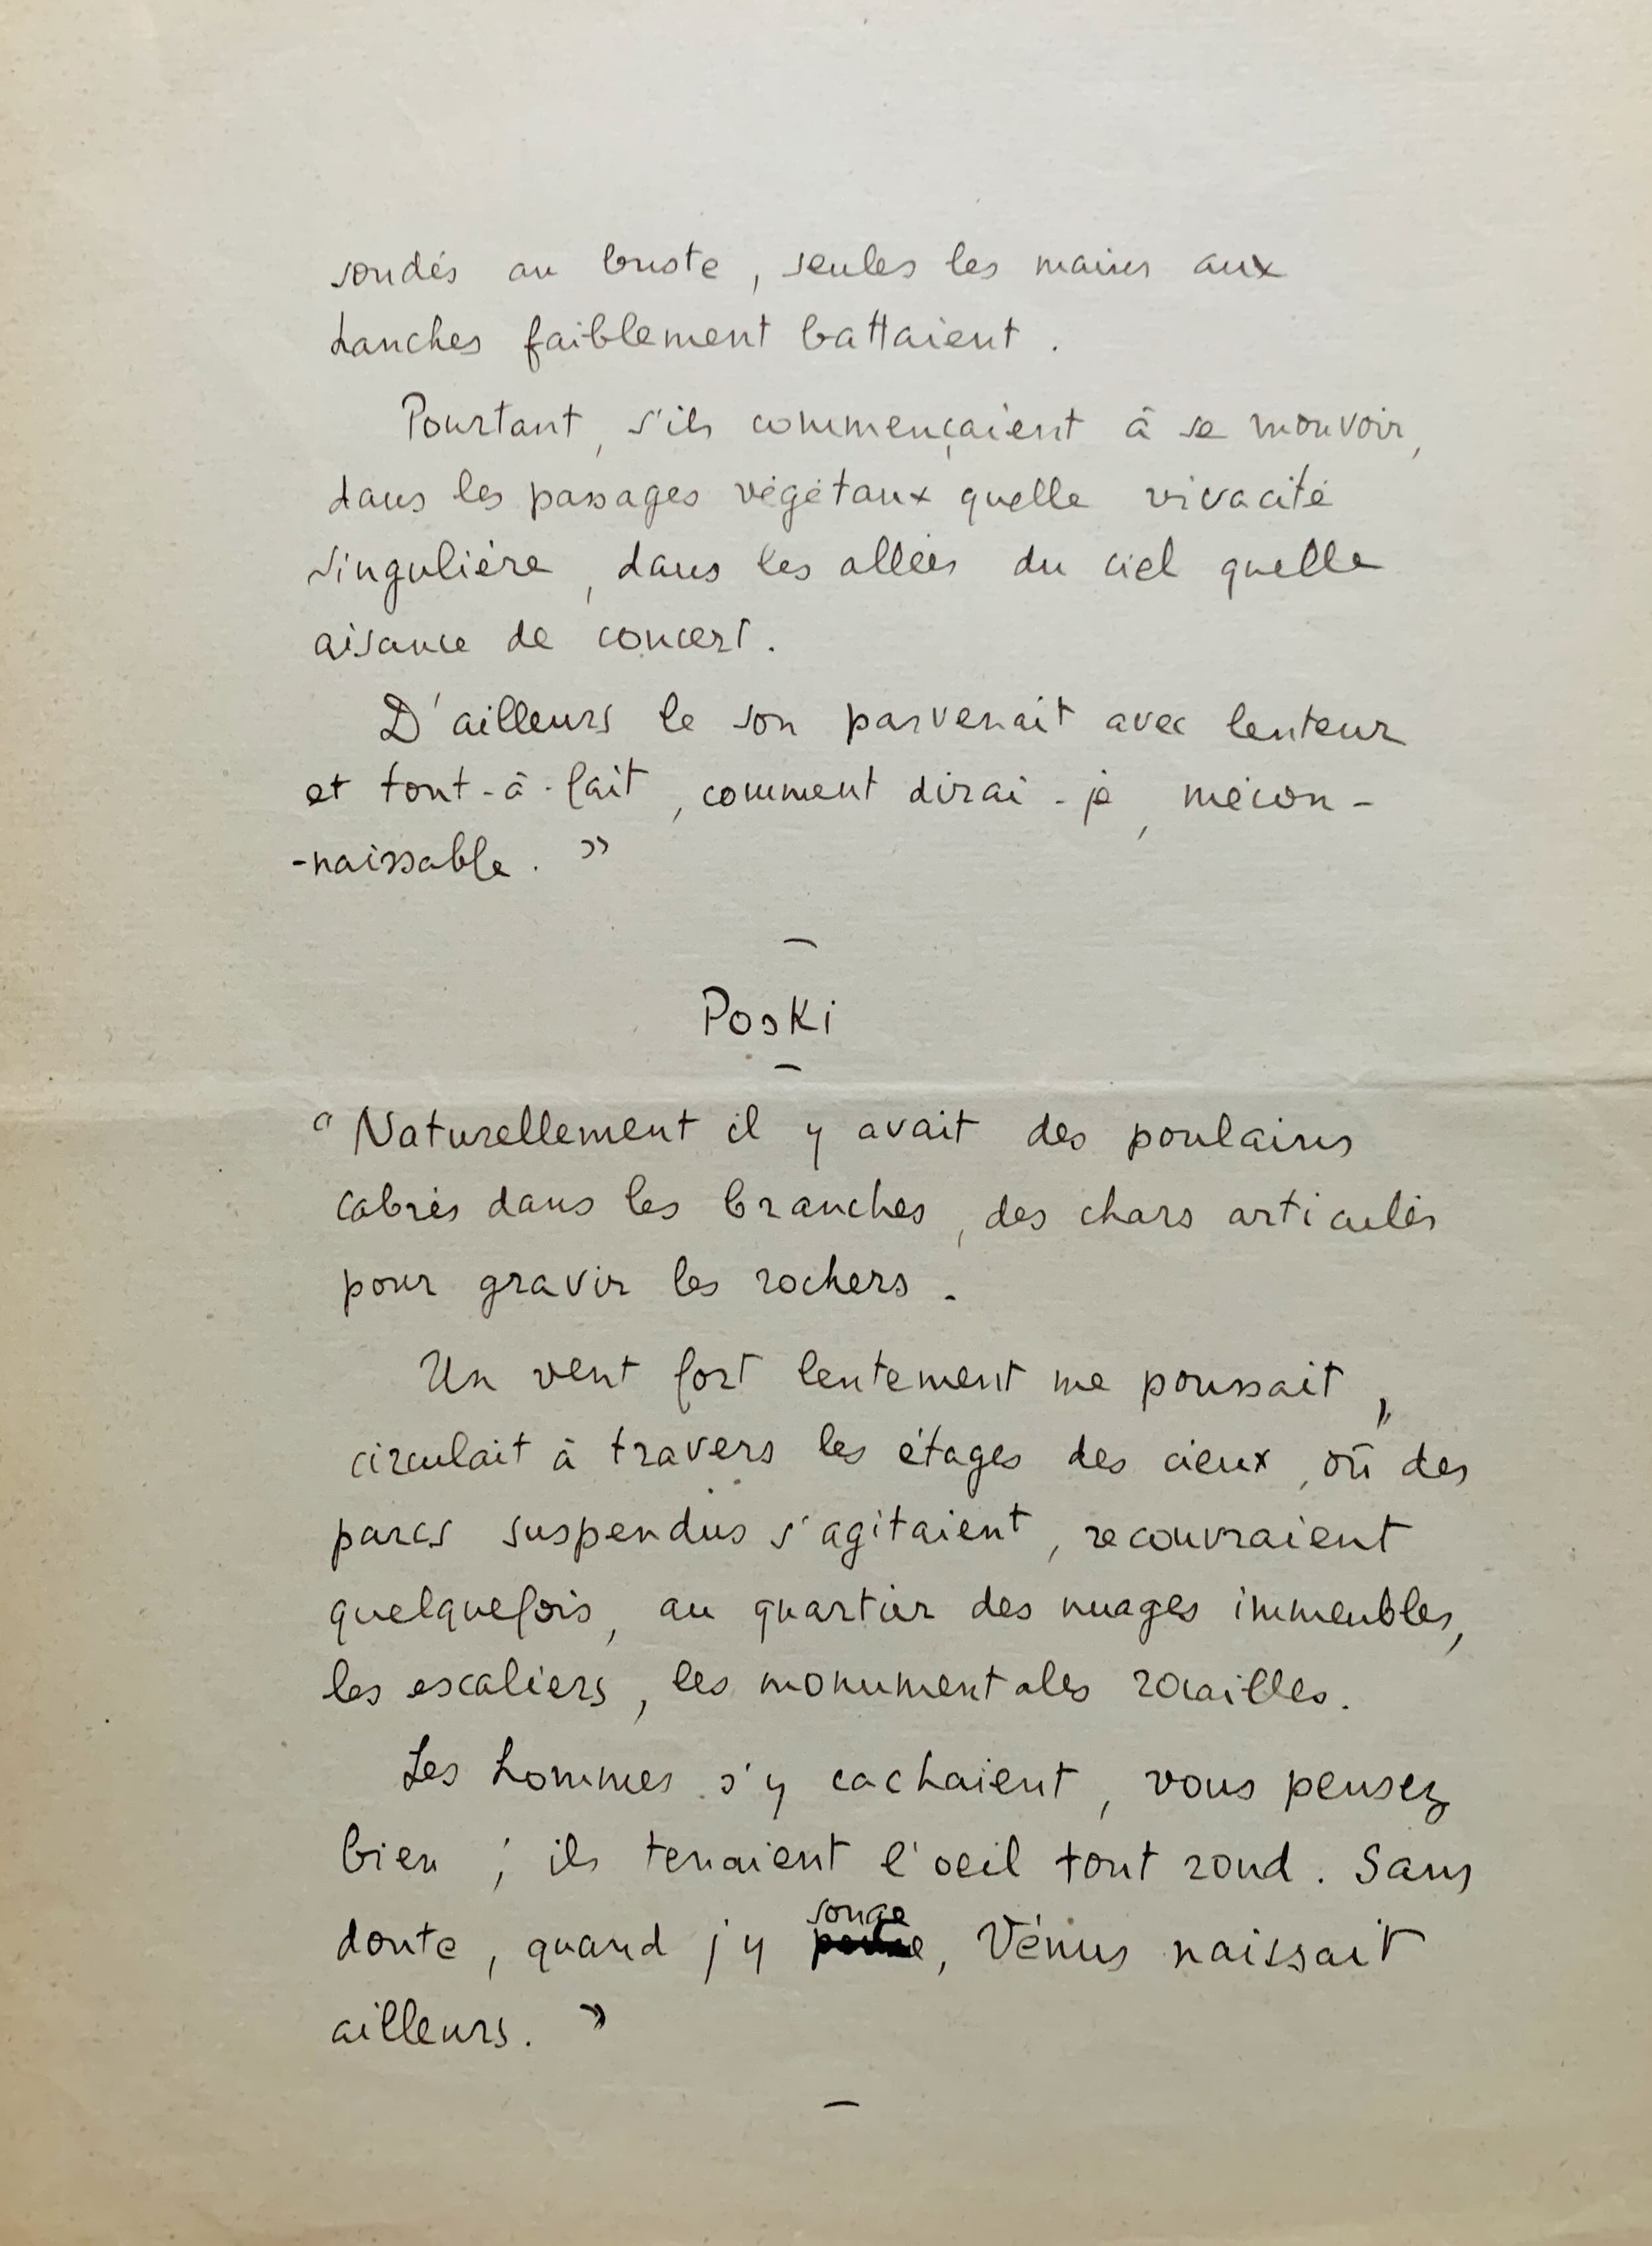 soudés au buste, seules les mains aux
hanches faiblement battaient.
Pourtant, s'ils commençaient à se mouvoir,
dans les passages végétaux quelle vivacité
singulière, dans les allées du ciel quelle
aisance de concert.
D'ailleurs le son parvenait avec lenteur
et tout-à-fait, comment dirai-je, mécon-
-naissable. »
—
Poski
—
« Naturellement il y avait des poulains
cabrés dans les branches, des chars articulés
pour gravir les rochers.
Un vent fort lentement me poussait,
circulait à travers les étages des cieux, où des
parcs suspendus s'agitaient, recouvraient
quelquefois, au quartier des nuages immeubles,
les escaliers, les monumentales rocailles.
Les hommes s'y cachaient, vous pensez
bien ; ils tenaient l'oeil tout rond. Sans
songe
doute, quand j'y pense, Vénus naissait
ailleurs. »
—